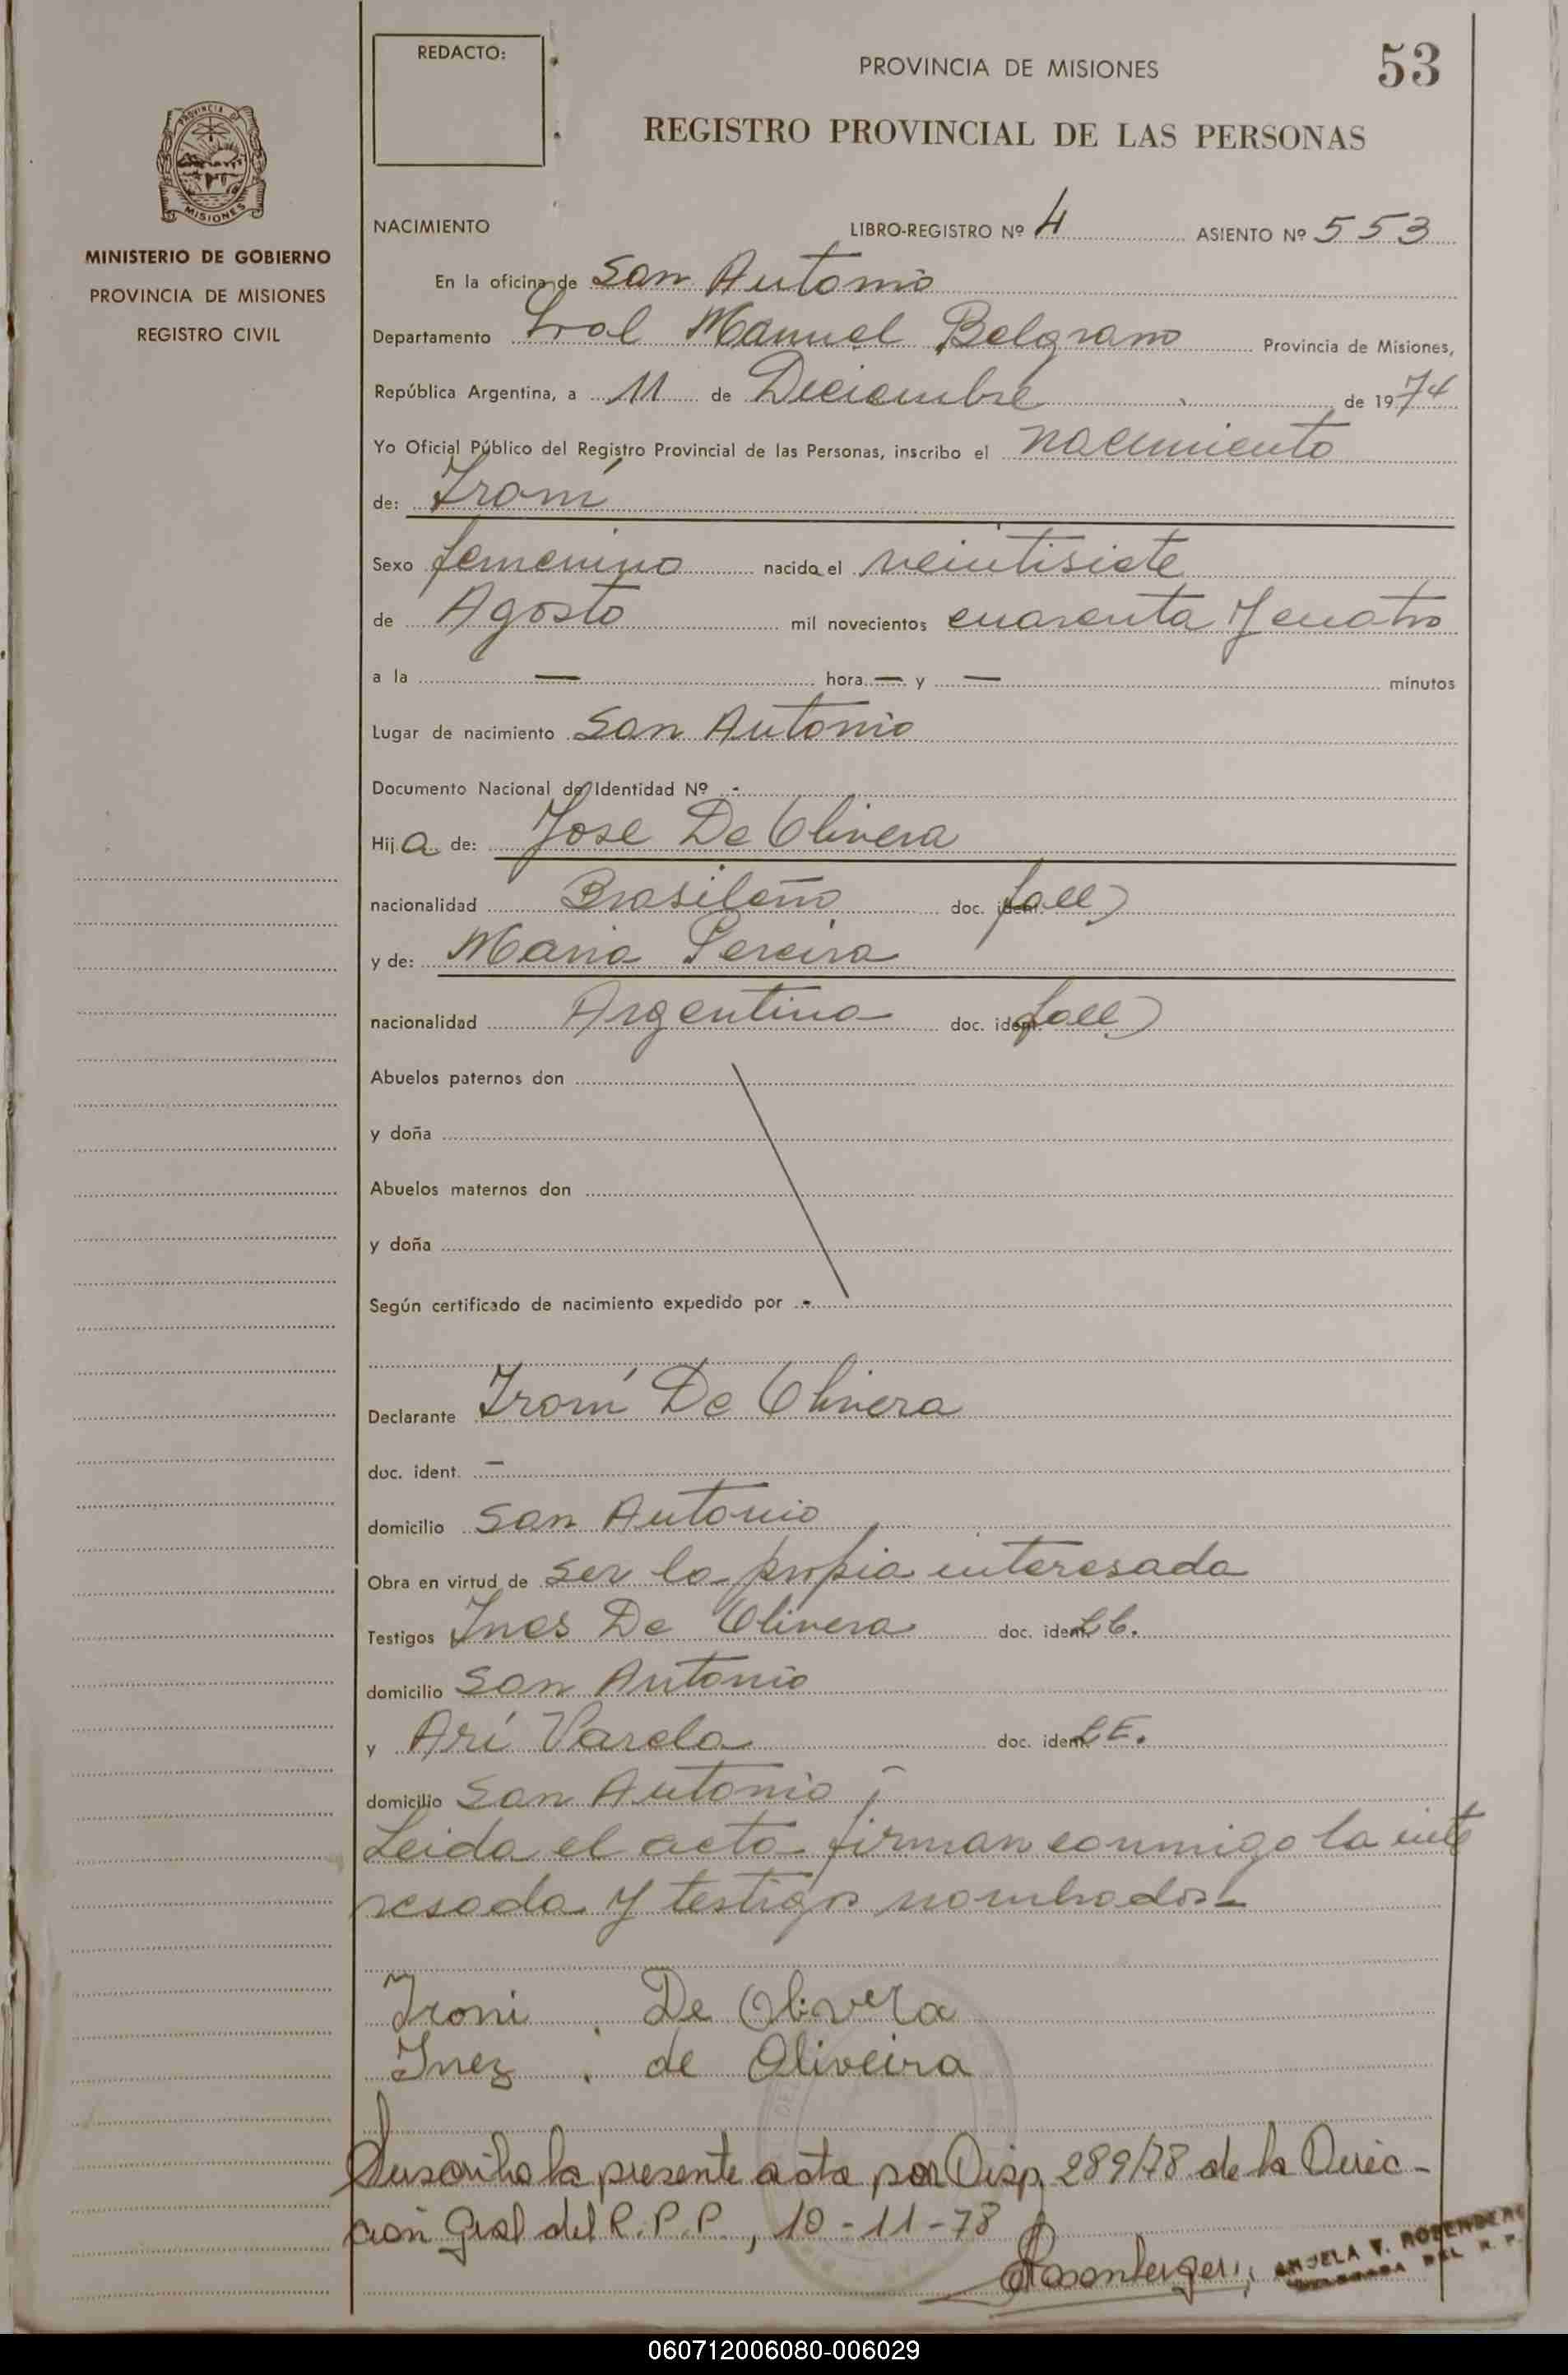 REDACTO:
PROVINCIA DE MISIONES
53
REGISTRO PROVINCIAL DE LAS PERSONAS
PROVINCIA D
MISIONES
MINISTERIO DE GOBIERNO
PROVINCIA DE MISIONES
REGISTRO CIVIL
NACIMIENTO LIBRO-REGISTRO Nº 4 ASIENTO Nº 553
En la oficina de San Antonio
Departamento Gral Manuel Belgrano Provincia de Misiones,
República Argentina, a 11 de Diciembre de 1974
Yo Oficial Público del Registro Provincial de las Personas, inscribo el nacimiento
de: Ironí
Sexo femenino nacido el veintisiete
de Agosto mil novecientos cuarenta y cuatro
a la — hora — y — minutos
Lugar de nacimiento San Antonio
Documento Nacional de Identidad Nº -
Hija de: Jose De Olivera
nacionalidad Brasileño doc. ident. fall)
y de: Maria Pereira
nacionalidad Argentina doc. ident. fall)
Abuelos paternos don
y doña
Abuelos maternos don
y doña
Según certificado de nacimiento expedido por -
Declarante Ironí De Olivera
doc. ident. —
domicilio San Antonio
Obra en virtud de ser la propia interesada
Testigos Ines De Olivera doc. ident.
domicilio San Antonio
y Arí Varela doc. ident. LE.
domicilio San Antonio
Leida el acta firman conmigo la inte
resada y testigos nombrados
Ironi De Olivera
Inez de Oliveira
Suscribo la presente acta por Disp. 289/78 de la Direc-
ción Gral del R.P.P., 10-11-78
ANGELA V. ROSENBERG
DELEGADA DEL R. P.
060712006080-006029